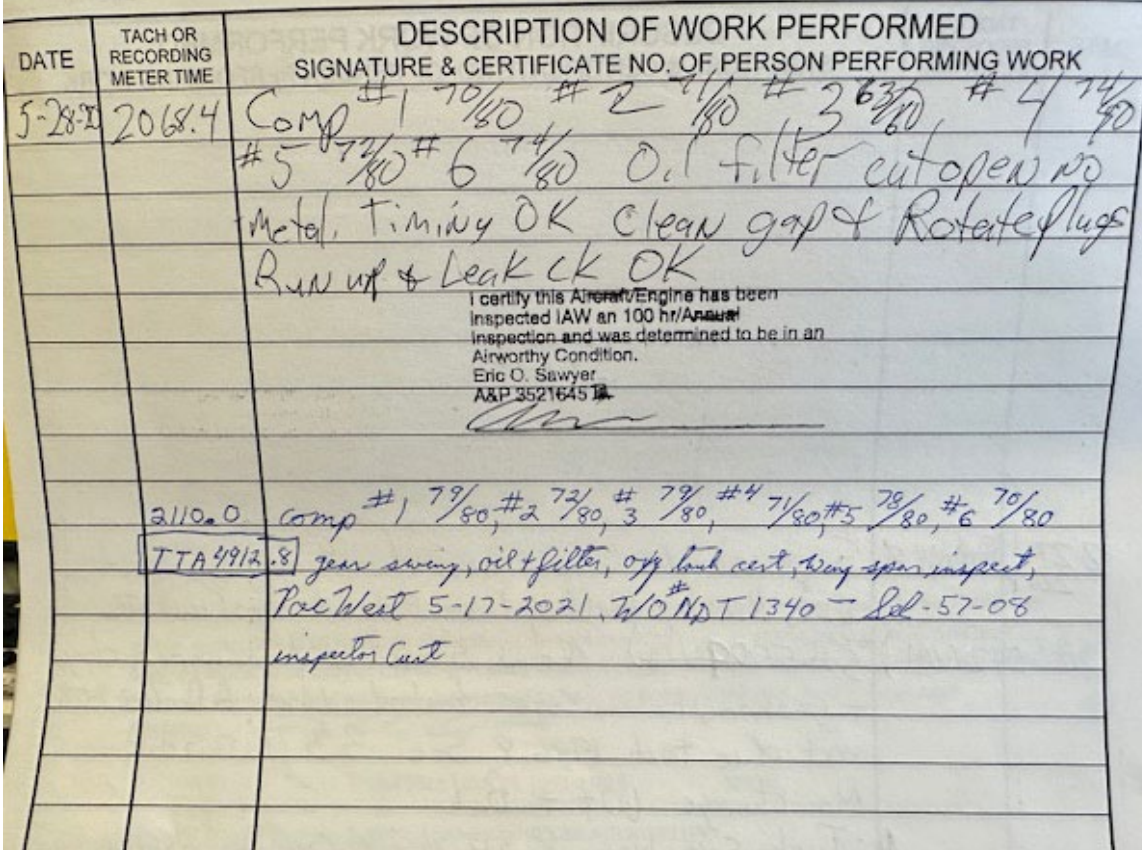 DATE
TACH OR
RECORDING
METER TIME
DESCRIPTION OF WORK PERFORMED
SIGNATURE & CERTIFICATE NO. OF PERSON PERFORMING WORK
5-28-20 2068.4 Comp #1 70/80 #2 71/80 #3 63/80, #4 74/80
#5 72/80 #6 74/80 Oil filter cut open no
Metal. Timing OK Clean gap & Rotate plugs
Run up & Leak ck OK
I certify this Aircraft/Engine has been
inspected IAW an 100 hr/Annual
inspection and was determined to be in an
Airworthy Condition.
Eric O. Sawyer
A&P 3521645
2110.0 comp #1 79/80, #2 72/80, #3 79/80, #4 71/80, #5 78/80, #6 70/80
TTA 4912.8 gear swing, oil + filter, oxy tank cert, wing spar inspect,
Pac West 5-17-2021, W/O# NDT 1340 - Sel-57-08
inspector Curt